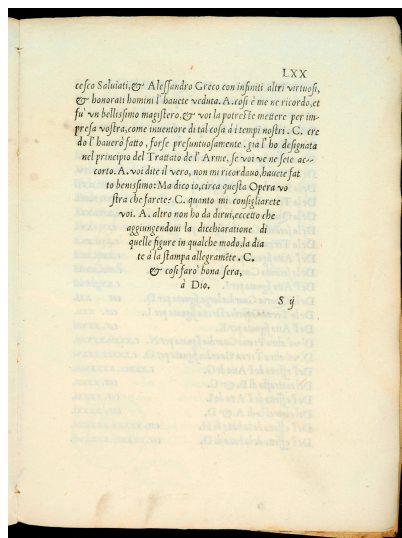 LXX
cesco Saluiati, & Alessandro Greco con infiniti altri virtuosi,
& honorati homini l'hauete veduta. A. cosi è me ne ricordo, et
fu vn bellissimo magistero, & voi la potreste mettere per im-
presa vostra, come inuentore di tal cosa à i tempi nostri. C. cre
do l'hauerò fatto, forse presuntuosamente, già l'ho designata
nel principio del Trattato de l'Arme, se voi ve ne sete ac-
corto. A. voi dite il vero, non mi ricordauo, hauete fat
to benissimo: Ma dico io, circa questa Opera vo
stra che farete? C. quanto mi consigliarete
voi. A. altro non ho da dirui, eccetto che
aggiungendoui la dicchiaratione di
quelle figure in qualche modo, la dia
te à la stampa allegramẽte. C.
& cosi farò bona sera,
à Dio.
S ij